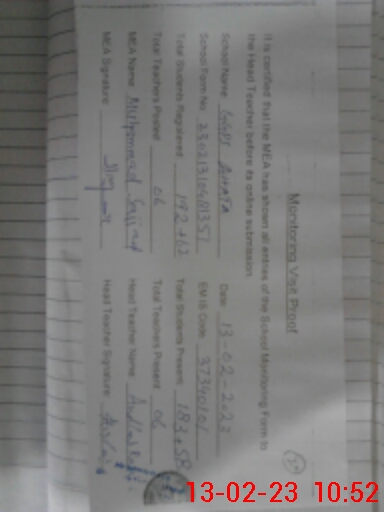 Monitoring Visit Proof
It is certified that the MEA has shown all entries of the School Monitoring Form to
the Head Teacher before its online submission.
School Name: GGPS Date: 13-02-2023
School Form No. EMIS Code: 37340101
Total Students Registered: 192+62 Total Students Present: 183+58
Total Teachers Posted: 06 Total Teachers Present: 06
MEA Name: Muhammad Sajjad Head Teacher Name:
MEA Signature: Head Teacher Signature:
13-02-23 10:52